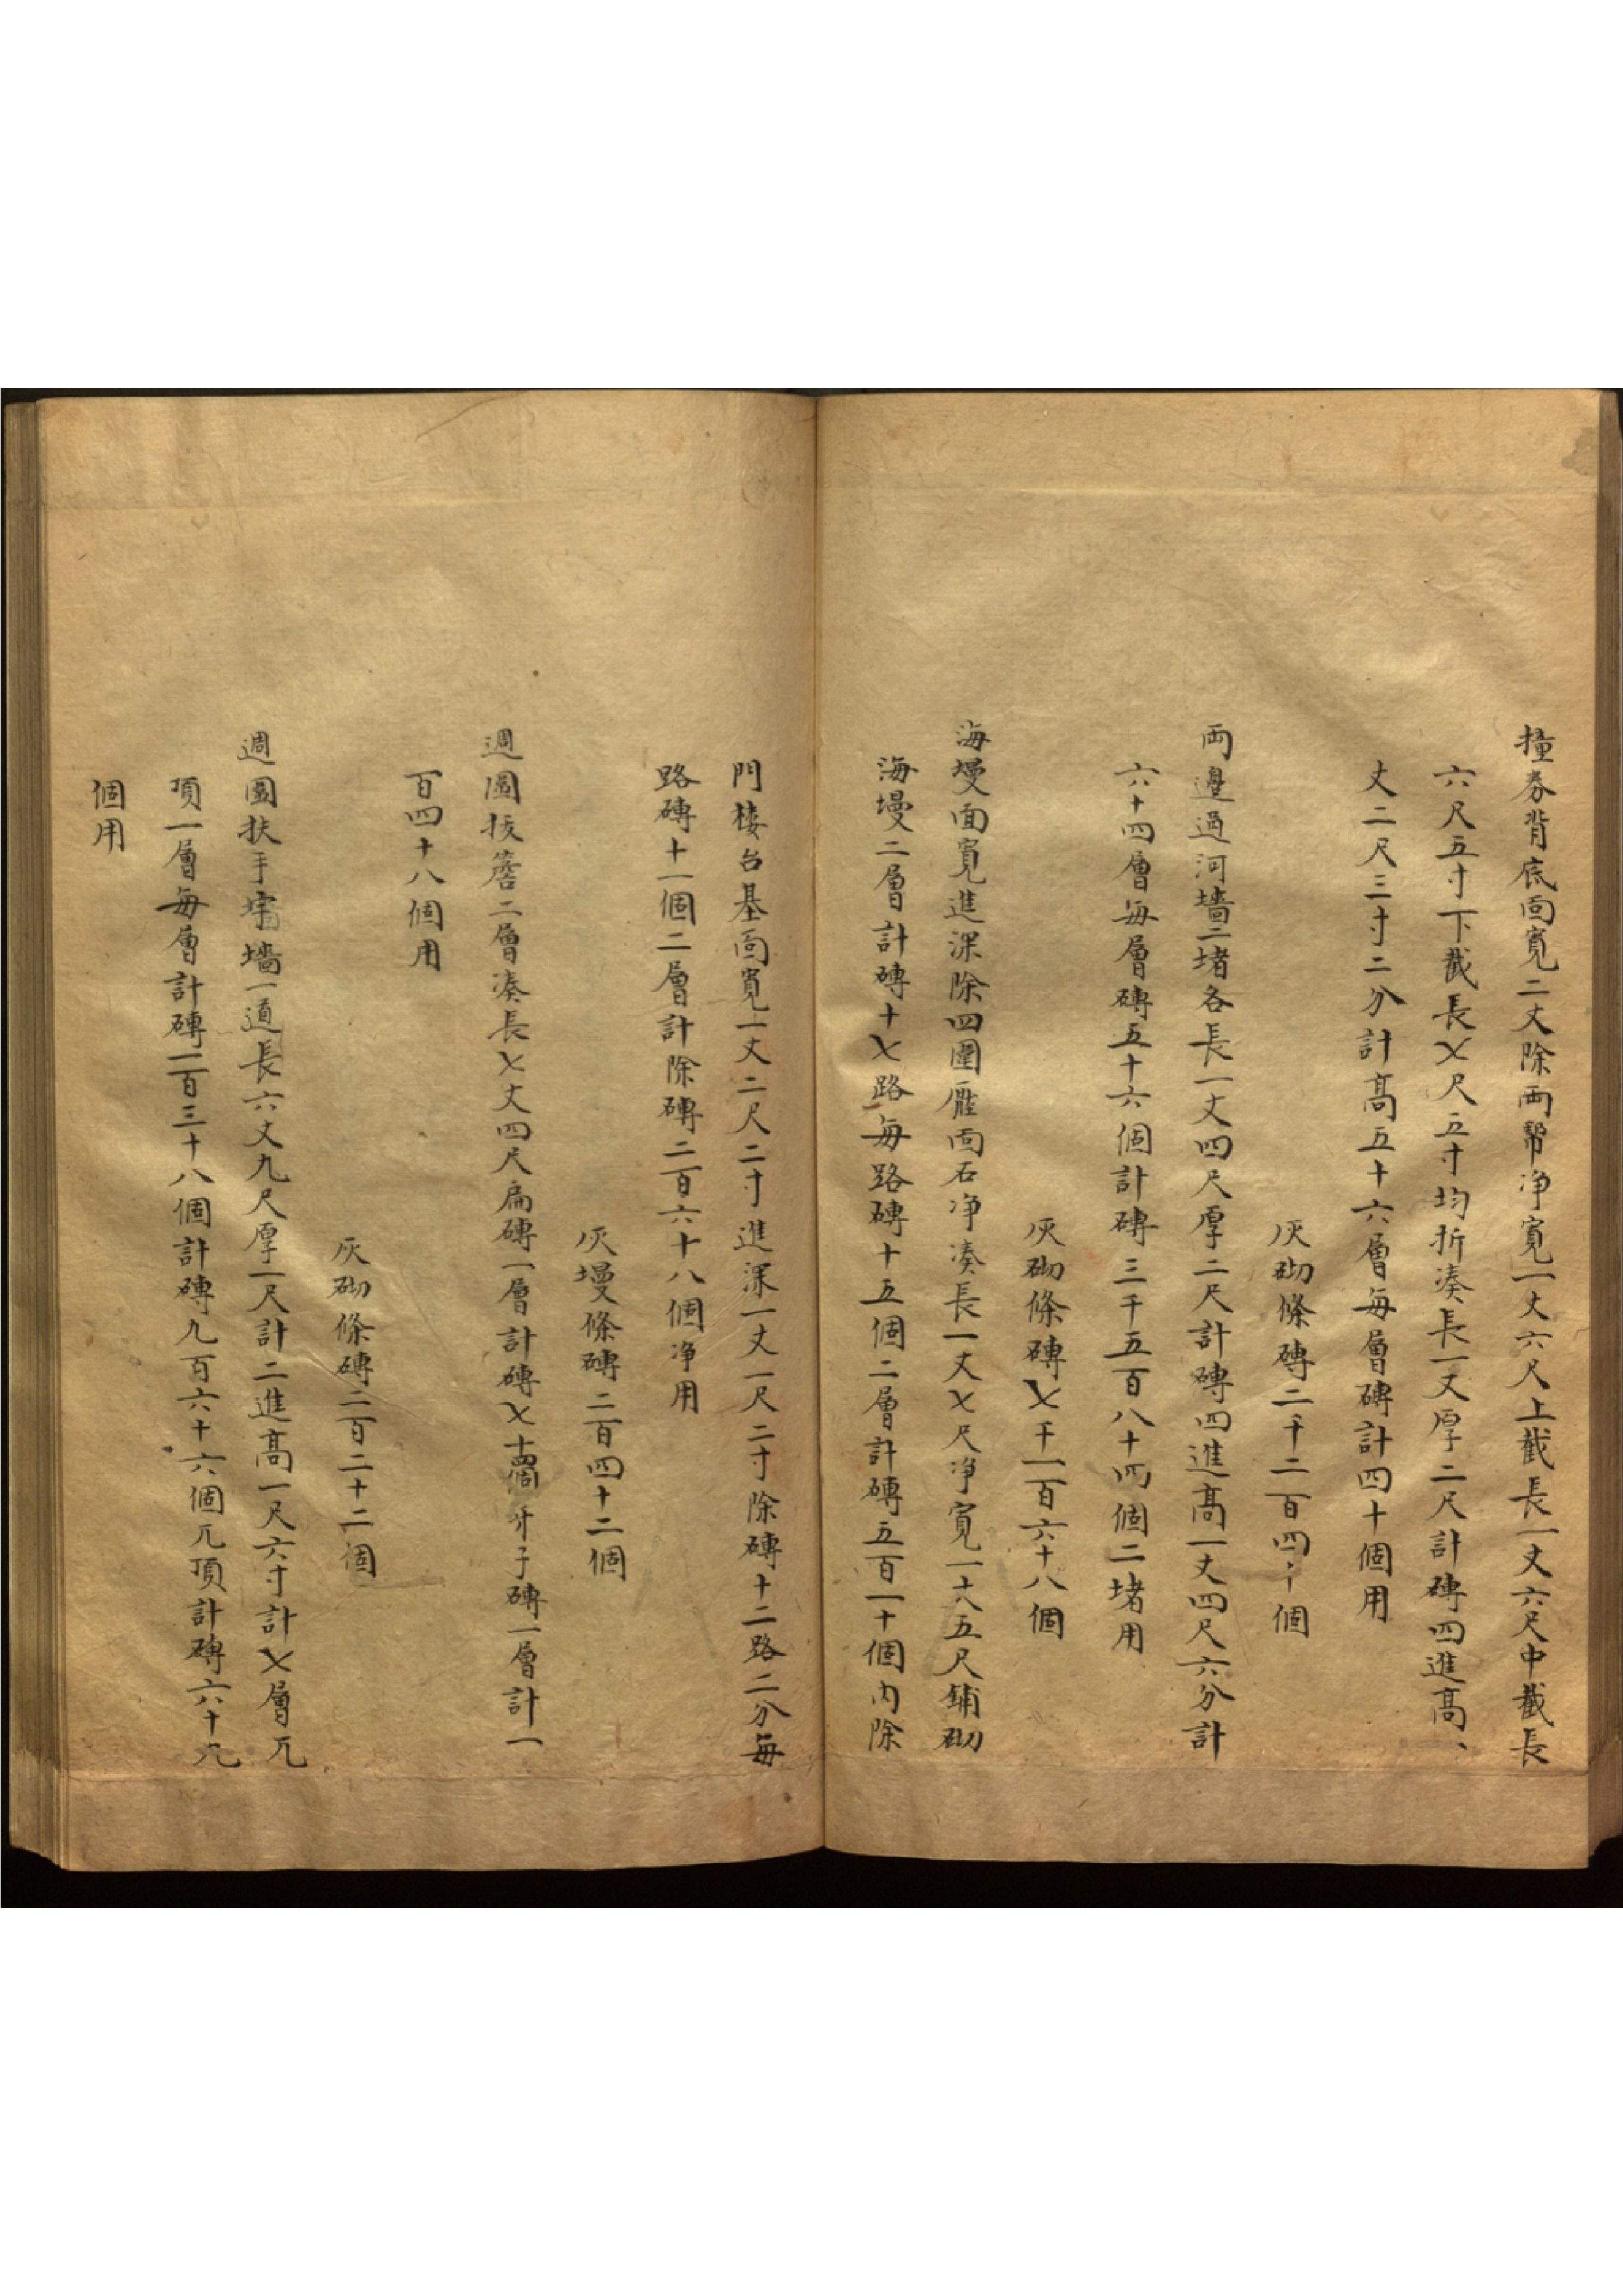 撞券背底面寬二丈除兩幫净寬一丈六尺上截長一丈六尺中截長
六尺五寸下截長七尺五寸均折凑長一丈厚二尺計磚四進高一
丈二尺三寸二分計高五十六層每層磚計四十個用
灰砌條磚二千二百四十個
両邊過河墻二堵各長一丈四尺厚二尺計磚四進高一丈四尺六分計
六十四層每層磚五十六個計磚三千五百八十四個二堵用
灰砌條磚七千一百六十八個
海墁面寬進深除四圍雁面石净凑長一丈七尺净寬一丈五尺鋪砌
海墁二層計磚十七路每路磚十五個二層計磚五百一十個內除
門楼台基面寬一丈二尺二寸進深一丈一尺二寸除磚十二路二分每
路磚十一個二層計除磚二百六十八個净用
灰墁條磚二百四十二個
週圍拔簷二層凑長七丈四尺扁磚一層計磚七十四個牙子磚一層計一
百四十八個用
灰砌條磚二百二十二個
週圍扶手墻一道長六丈九尺厚一尺計二進高一尺六寸計七層兀
頂一層每層計磚一百三十八個計磚九百六十六個兀頂計磚六十九
個用